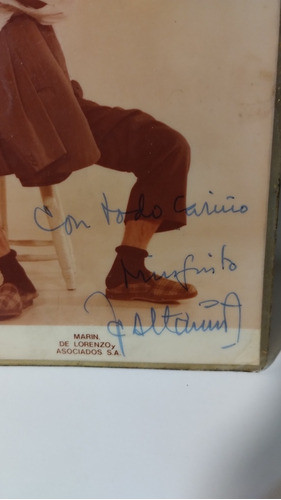 Con todo cariño
Minguito
J C Altavista
MARIN,
DE LORENZO y
ASOCIADOS S.A.